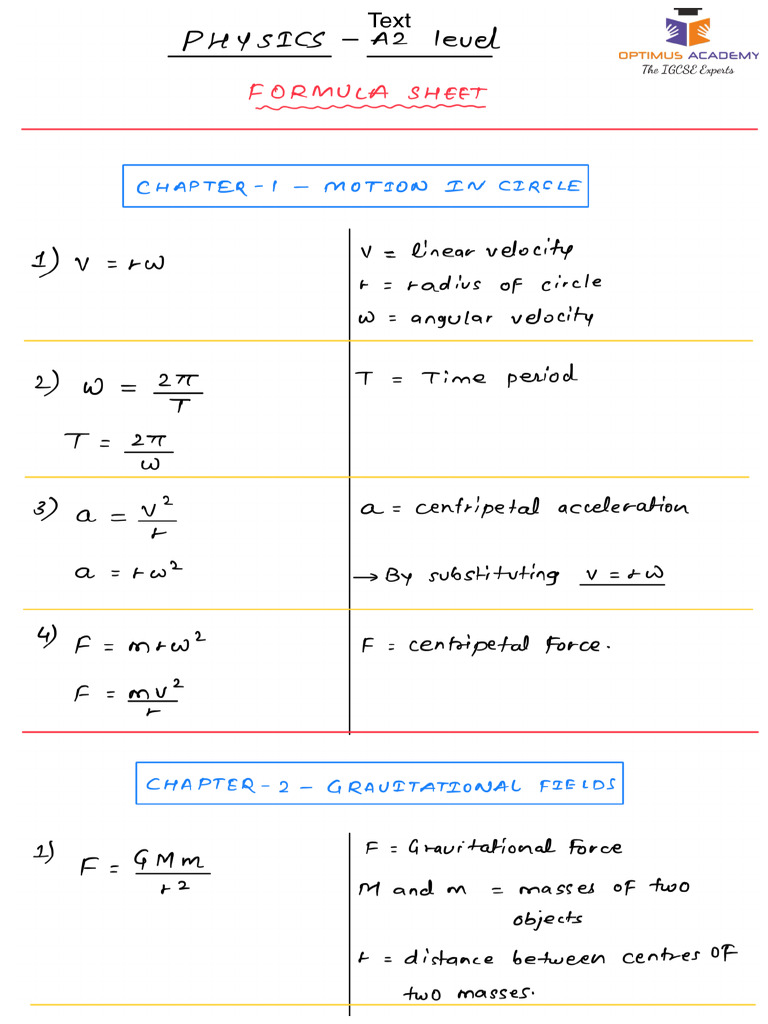 Text
PHYSICS - A2 level
OPTIMUS ACADEMY
The IGCSE Experts
FORMULA SHEET
CHAPTER-1 - MOTION IN CIRCLE
1) v = rω
v = linear velocity
r = radius of circle
ω = angular velocity
2) ω = 2π/T
T = 2π/ω
T = Time period
3) a = v²/r
a = rω²
a = centripetal acceleration
→ By substituting v = rω
4) F = mrω²
F = mv²/r
F = centripetal Force.
CHAPTER-2 - GRAVITATIONAL FIELDS
1) F = GMm/r²
F = Gravitational Force
M and m = masses of two
objects
r = distance between centres of
two masses.